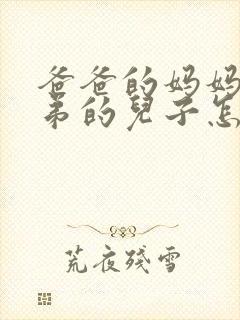 爸爸的妈妈
弟的兒子怎
荒夜殘雪